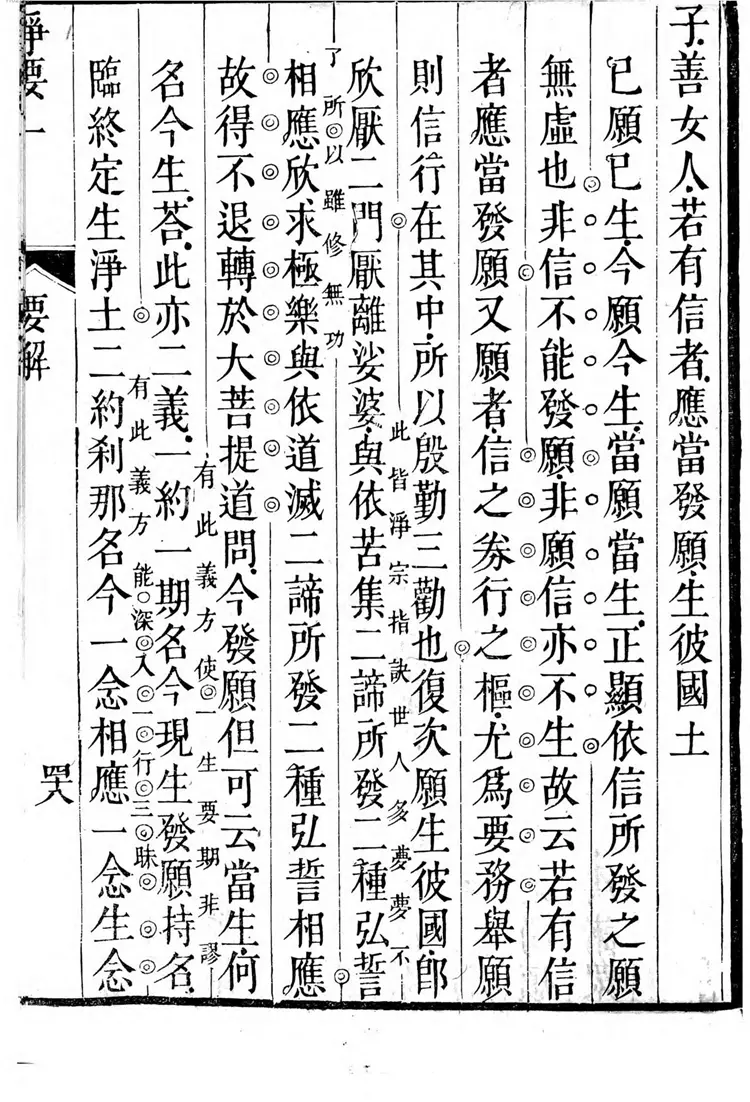 子善女人若有信者應當發願生彼國土
已願已生今願今生當願當生正顯依信所發之願
無虛也非信不能發願非願信亦不生故云若有信
者應當發願又願者信之券行之樞尤爲要務舉願
則信行在其中所以殷勤三勸也復次願生彼國即
此皆淨宗指訣世人多夢夢不
欣厭二門厭離娑婆與依苦集二諦所發二種弘誓
了所以雖修無功
相應欣求極樂與依道滅二諦所發二種弘誓相應
故得不退轉於大菩提道問今發願但可云當生何
有此義方使一生要期非謬
名今生荅此亦二義一約一期名今現生發願持名
有此義方能深入一行三昧
臨終定生淨土二約剎那名今一念相應一念生念
淨要一
要解
四十八